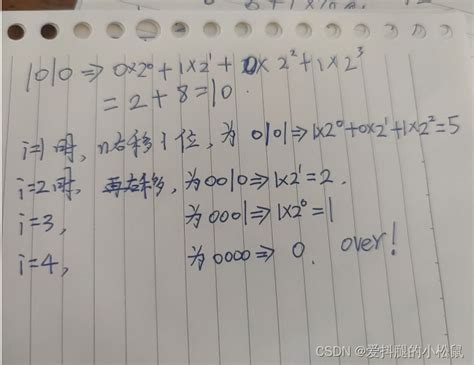 1010 ⇒ 0×2⁰+1×2¹+0×2²+1×2³
=2+8=10.
i=1时,n右移1位,为0101⇒1×2⁰+0×2¹+1×2²=5
i=2时,再右移,为0010⇒1×2¹=2.
i=3, 为0001⇒1×2⁰=1
i=4, 为0000⇒0. over!
CSDN @爱抖腿的小松鼠